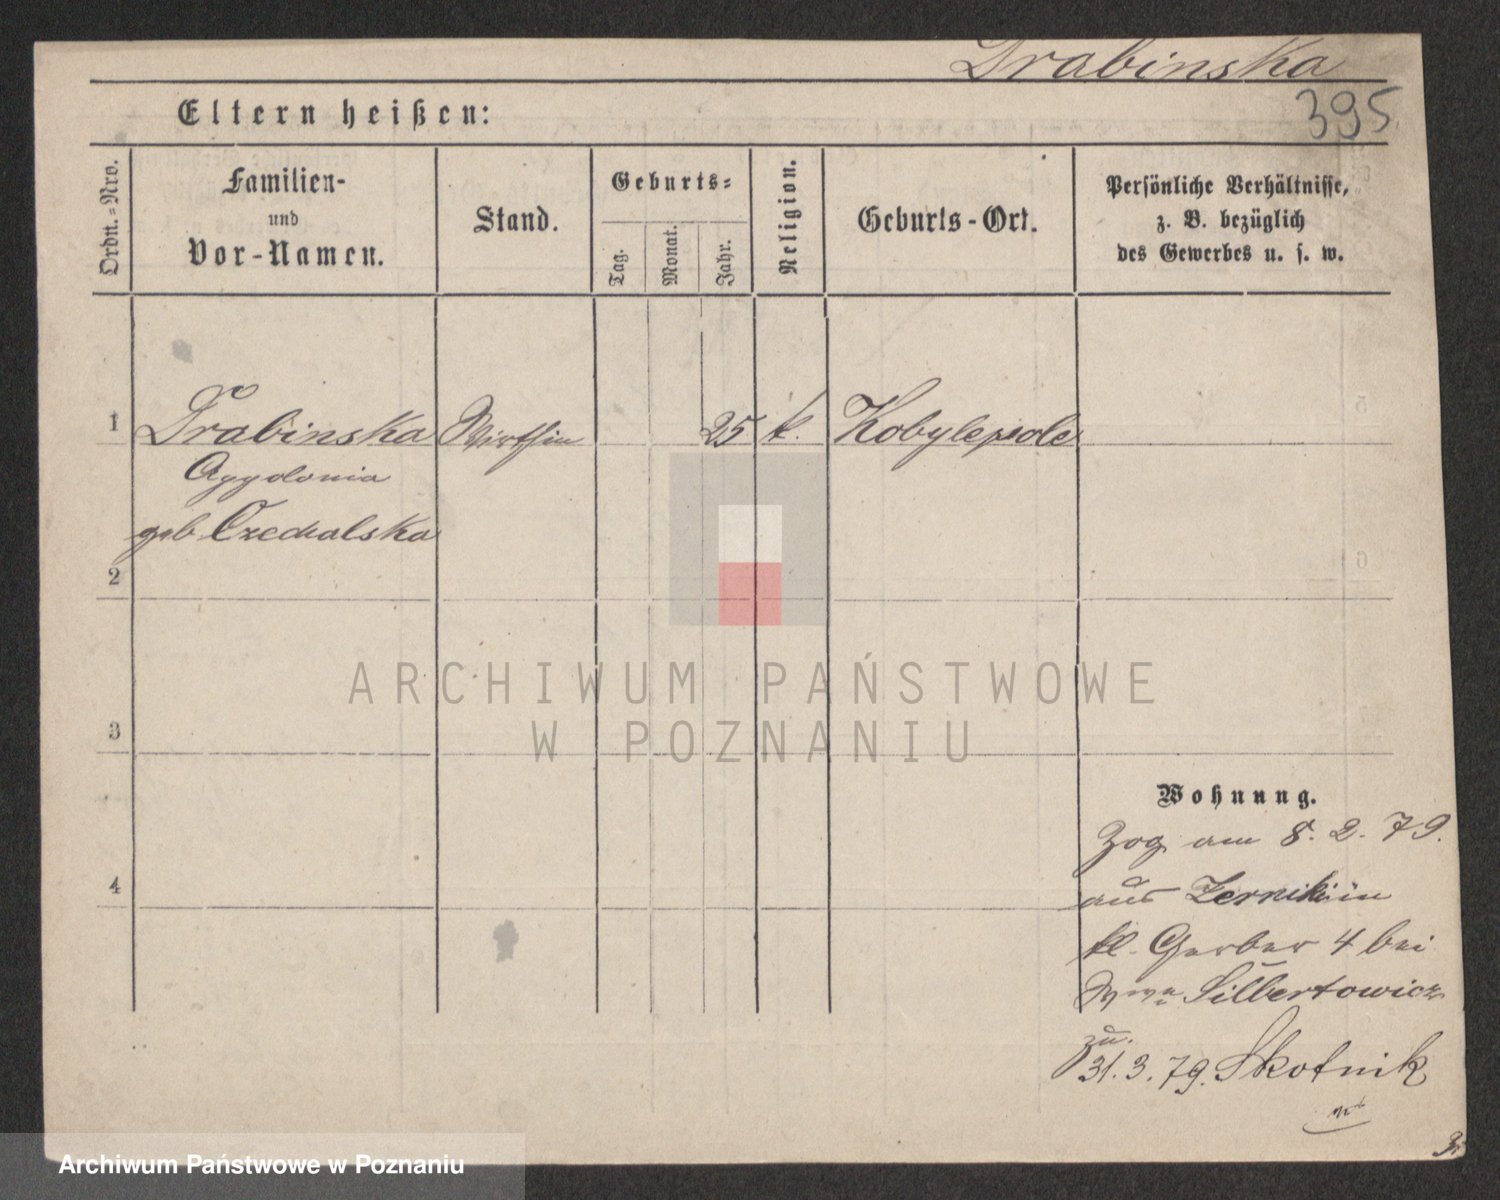 Drabinska
395
Eltern heißen:
Ordn.-Nro.
Familien-
und
Vor-Namen.
Stand.
Geburts-
Tag.
Monat.
Jahr.
Religion.
Geburts-Ort.
Persönliche Verhältnisse,
z. B. bezüglich
des Gewerbes u. s. w.
1 Drabinska Wirthin 25 k. Kobylepole
Apolonia
geb
2
3
4
Wohnung.
Zog am 8. 2. 79.
aus Zerniki in
kl. Gerber 4 bei
Wwe Silbertowicz
zu.
31.3.79. Skotnik
ARCHIWUM PAŃSTWOWE
W POZNANIU
Archiwum Państwowe w Poznaniu